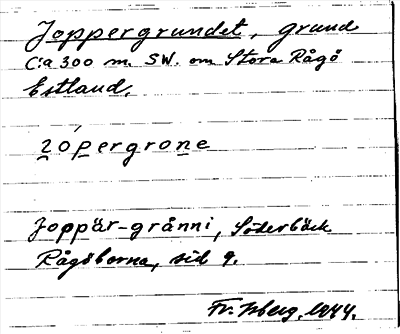 Joppergrundet, grund
C:a 300 m. SW. om Stora Rågö
Estland.
Joppär-grånni, Söderbäck
Rågöborna, sid 9.
Fr. Isberg, 1944.